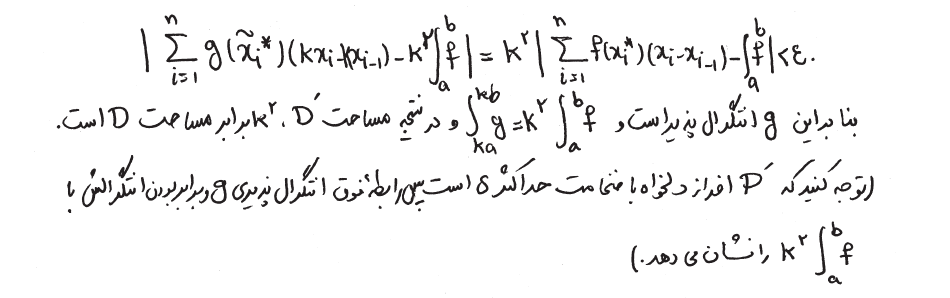 | Σ_{i=1}^{n} g(x̃_i^*)(kx_i - kx_{i-1}) - k^۲ ∫_a^b f | = k^۲ | Σ_{i=1}^{n} f(x_i^*)(x_i - x_{i-1}) - ∫_a^b f | < ε.
بنابراین g انتگرال پذیر است و ∫_{ka}^{kb} g = k^۲ ∫_a^b f و در نتیجه مساحت D′، k^۲ برابر مساحت D است.
(توجه کنید که P′ افراز دلخواه با ضخامت حداکثر δ است پس رابطهٔ فوق انتگرال پذیری g و برابر بودن انتگرالش با
k^۲ ∫_a^b f را نشان می دهد.)